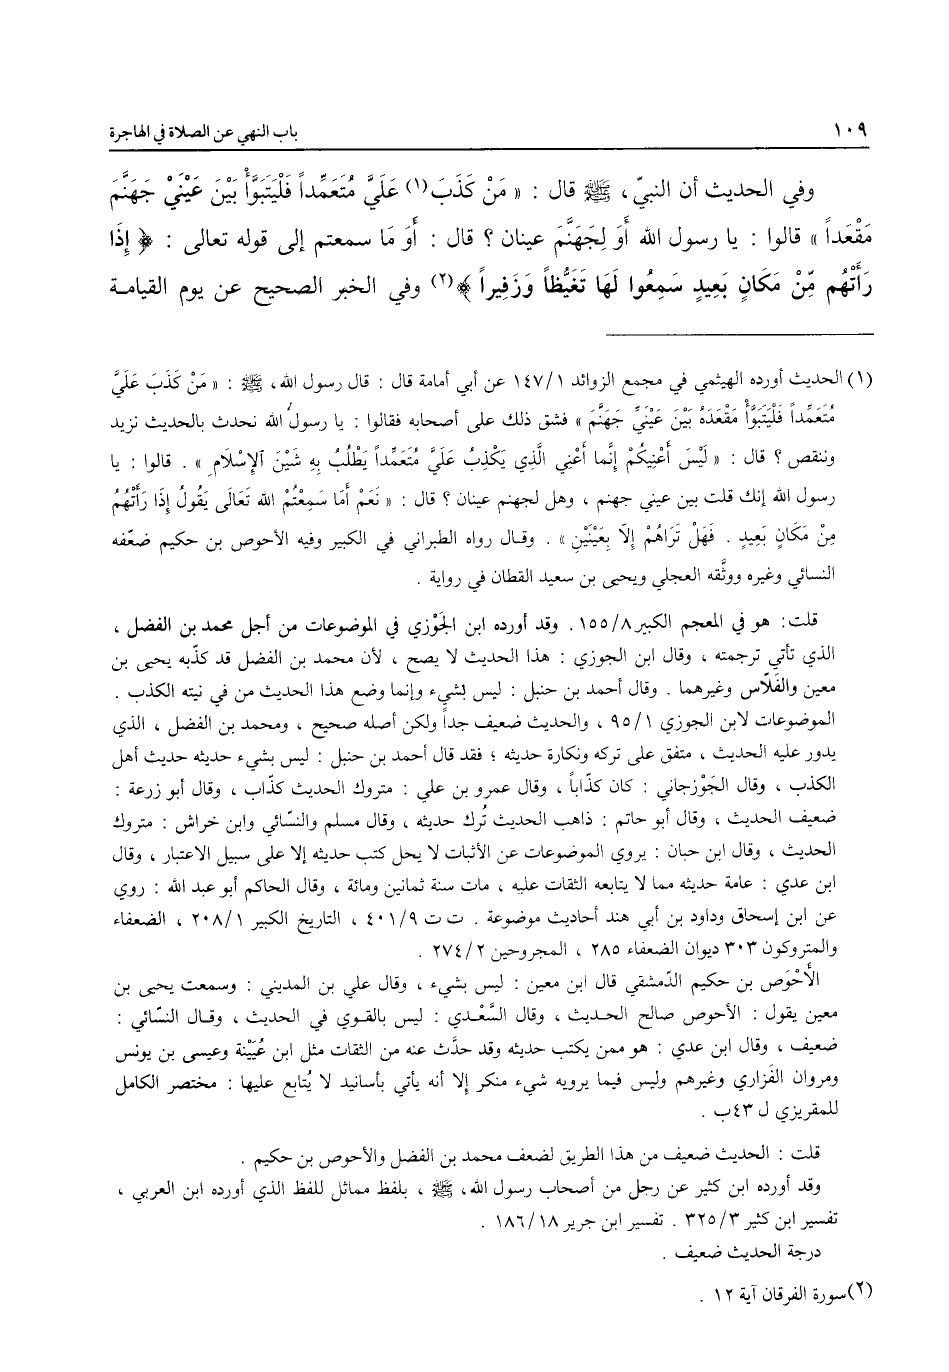 ١٠٩ باب النهي عن الصلاة في الهاجرة
وفي الحديث أن النبيّ، ﷺ قال : « مَنْ كَذَبَ(١) عَلَيَّ مُتَعَمِّداً فَلْيَتَبَوَّأْ بَيْنَ عَيْنَيْ جَهَنَّمَ
مَقْعَداً » قالوا : يا رسول الله أَوَ لِجَهَنَّمَ عينان ؟ قال : أَوَ مَا سمعتم إلى قوله تعالى : ﴿ إِذَا
رَأَتْهُم مِّنْ مَكَانٍ بَعِيدٍ سَمِعُوا لَهَا تَغَيُّظاً وَزَفِيراً ﴾(٢) وفي الخبر الصحيح عن يوم القيامة
(١) الحديث أورده الهيثمي في مجمع الزوائد ١٤٧/١ عن أبي أمامة قال : قال رسول الله، ﷺ : « مَنْ كَذَبَ عَلَيَّ
مُتَعَمِّداً فَلْيَتَبَوَّأْ مَقْعَدَهُ بَيْنَ عَيْنَيِّ جَهَنَّمَ » فشق ذلك على أصحابه فقالوا : يا رسول الله نحدث بالحديث نزيد
وننقص ؟ قال : « لَيْسَ أَعْنِيكُمْ إِنَّما أَعْنِي الَّذِي يَكْذِبُ عَلَيَّ مُتَعَمِّداً يَطْلُبُ بِهِ شَيْنَ الإِسْلَامِ » . قالوا : يا
رسول الله إنك قلت بين عيني جهنم ، وهل لجهنم عينان ؟ قال : « نَعَمْ أَمَا سَمِعْتُمْ الله تَعَالَى يَقُولُ إِذَا رَأَتْهُمُ
مِنْ مَكَانٍ بَعِيدٍ . فَهَلْ تَرَاهُمْ إِلاّ بِعَيْنَيْنِ » . وقال رواه الطبراني في الكبير وفيه الأحوص بن حكيم ضعّفه
النسائي وغيره ووثَّقه العجلي ويحيى بن سعيد القطان في رواية .
قلت: هو في المعجم الكبير ١٥٥/٨. وقد أورده ابن الجَوْزي في الموضوعات من أجل محمد بن الفضل ،
الذي تأتي ترجمته ، وقال ابن الجوزي : هذا الحديث لا يصح ، لأن محمد بن الفضل قد كذّبه يحيى بن
معين والفَلّاس وغيرهما . وقال أحمد بن حنبل : ليس بشيء وإنما وضع هذا الحديث من في نيته الكذب .
الموضوعات لابن الجوزي ٩٥/١ ، والحديث ضعيف جداً ولكن أصله صحيح ، ومحمد بن الفضل ، الذي
يدور عليه الحديث ، متفق على تركه ونكارة حديثه ؛ فقد قال أحمد بن حنبل : ليس بشيء حديثه حديث أهل
الكذب ، وقال الجَوْزجاني : كان كذّاباً ، وقال عمرو بن علي : متروك الحديث كذّاب ، وقال أبو زرعة :
ضعيف الحديث ، وقال أبو حاتم : ذاهب الحديث تُرك حديثه ، وقال مسلم والنّسائي وابن خراش : متروك
الحديث ، وقال ابن حبان : يروي الموضوعات عن الأثبات لا يحل كتب حديثه إلا على سبيل الاعتبار ، وقال
ابن عدي : عامة حديثه مما لا يتابعه الثقات عليه ، مات سنة ثمانين ومائة ، وقال الحاكم أبو عبد الله : روي
عن ابن إسحاق وداود بن أبي هند أحاديث موضوعة . ت ت ٤٠١/٩ ، التاريخ الكبير ٢٠٨/١ ، الضعفاء
والمتروكون ٣٠٣ ديوان الضعفاء ٢٨٥ ، المجروحين ٢٧٤/٢ .
الأَحْوَص بن حكيم الدّمشقي قال ابن معين : ليس بشيء ، وقال علي بن المديني : وسمعت يحيى بن
معين يقول : الأحوص صالح الحديث ، وقال السَّعْدي : ليس بالقوي في الحديث ، وقال النّسائي :
ضعيف ، وقال ابن عدي : هو ممن يكتب حديثه وقد حدَّث عنه من الثقات مثل ابن عُيَيْنة وعيسى بن يونس
ومروان الفَزاري وغيرهم وليس فيما يرويه شيء منكر إلا أنه يأتي بأسانيد لا يُتابع عليها : مختصر الكامل
للمقريزي ل ٤٣ب .
قلت : الحديث ضعيف من هذا الطريق لضعف محمد بن الفضل والأحوص بن حكيم .
وقد أورده ابن كثير عن رجل من أصحاب رسول الله، ﷺ ، بلفظ مماثل للفظ الذي أورده ابن العربي ،
تفسير ابن كثير ٣٢٥/٣ . تفسير ابن جرير ١٨٦/١٨ .
درجة الحديث ضعيف .
(٢) سورة الفرقان آية ١٢ .